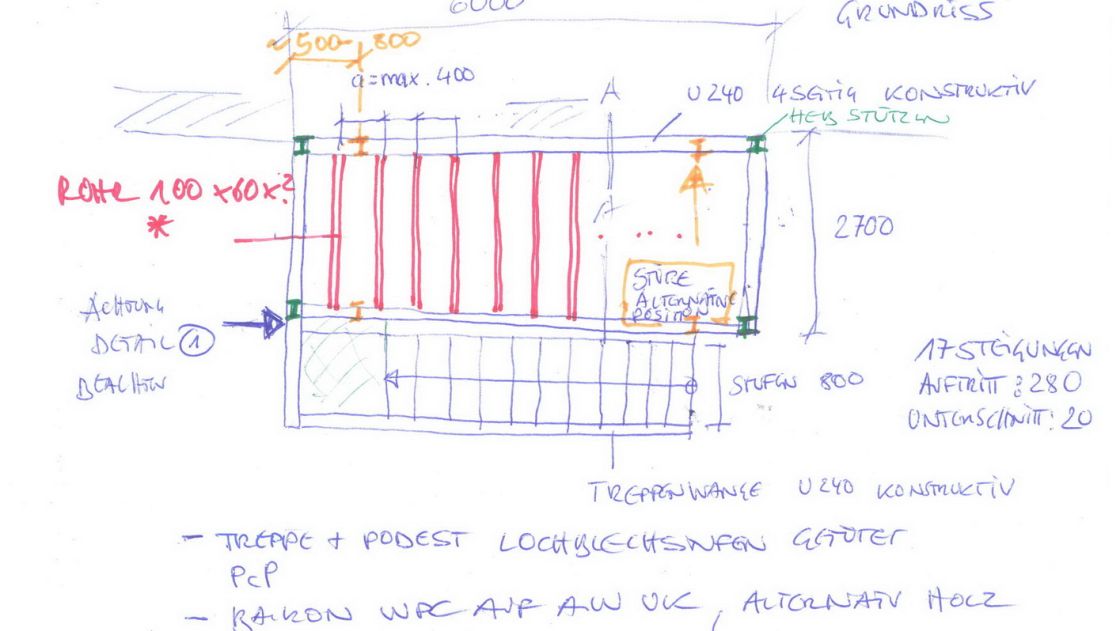 6000
GRUNDRISS
500 800
a=max. 400
A
U240 4SEITIG KONSTRUKTIV
HEB STÜTZEN
ROHR 100x60x?
*
A
2700
STÜZE
ALTERNATIVE
POSITION
ACHTUNG
DETAIL 1
BEACHTEN
STUFEN 800
17 STEIGUNGEN
AUFTRITT: 280
UNTERSCHNITT: 20
TREPPENWANGE U240 KONSTRUKTIV
- TREPPE + PODEST LOCHBLECHSTUFEN
PCP
- BALKON WPC AUF ALU UK, ALTERNATIV HOLZ